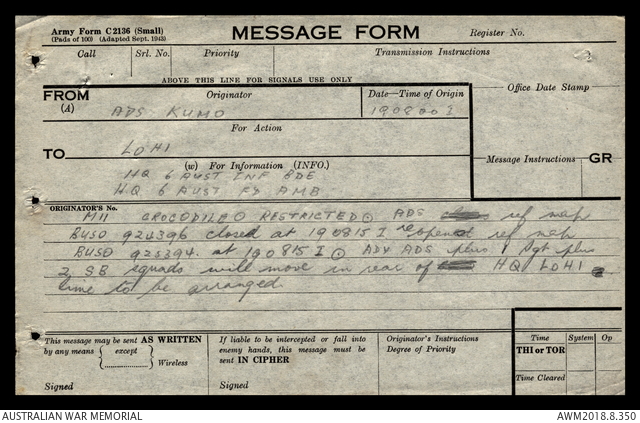 Army Form C2136 (Small)
(Pads of 100) (Adapted Sept. 1943)
MESSAGE FORM
Register No.
Call
Srl. No.
Priority
Transmission Instructions
ABOVE THIS LINE FOR SIGNALS USE ONLY
FROM
(A)
Originator
ADS KUMO
Date—Time of Origin
190800 I
Office Date Stamp
For Action
TO
LOHI
(w) For Information (INFO.)
HQ 6 AUST INF BDE
HQ 6 AUST FD AMB
Message Instructions
GR
ORIGINATOR'S No.
M11 CROCODILE RESTRICTED ADS ref map
BUSO 924396 closed at 190815 I reopened ref map
BUSO 925394 at 190815 I ADV ADS plus 1 Sgt plus
2 SB squads will move in rear of HQ LOHI
time to be arranged
This message may be sent AS WRITTEN
by any means { except } Wireless
Signed
If liable to be intercepted or fall into
enemy hands, this message must be
sent IN CIPHER
Signed
Originator's Instructions
Degree of Priority
Time
System
Op
THI or TOR
Time Cleared
AUSTRALIAN WAR MEMORIAL
AWM2018.8.350